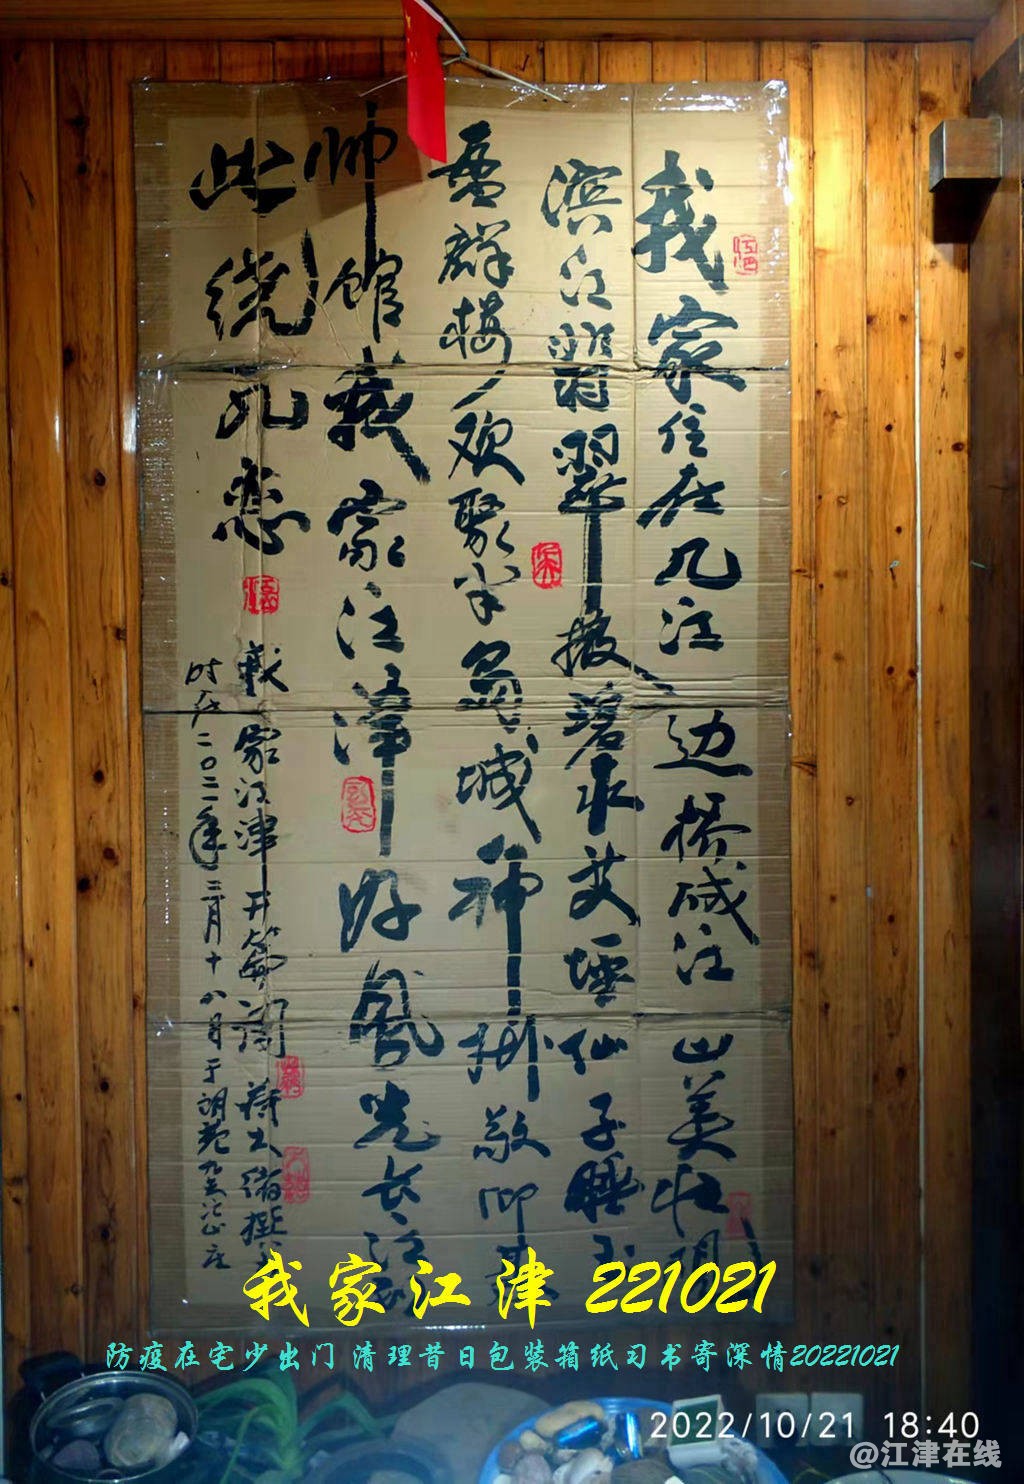 我家住在几江边桥江山美壮阔
滨江翡翠披碧衣艾坪仙子睡玉
盈群楼欢聚半岛城神州敬仰聂
帅馆我家江津好风光长江
此绕几恋
我家江津开篇词
时在二〇二二年二月十八日于
我家江津 221021
防疫在宅少出门 清理昔日包装箱纸习书寄深情20221021
2022/10/21 18:40
@江津在线